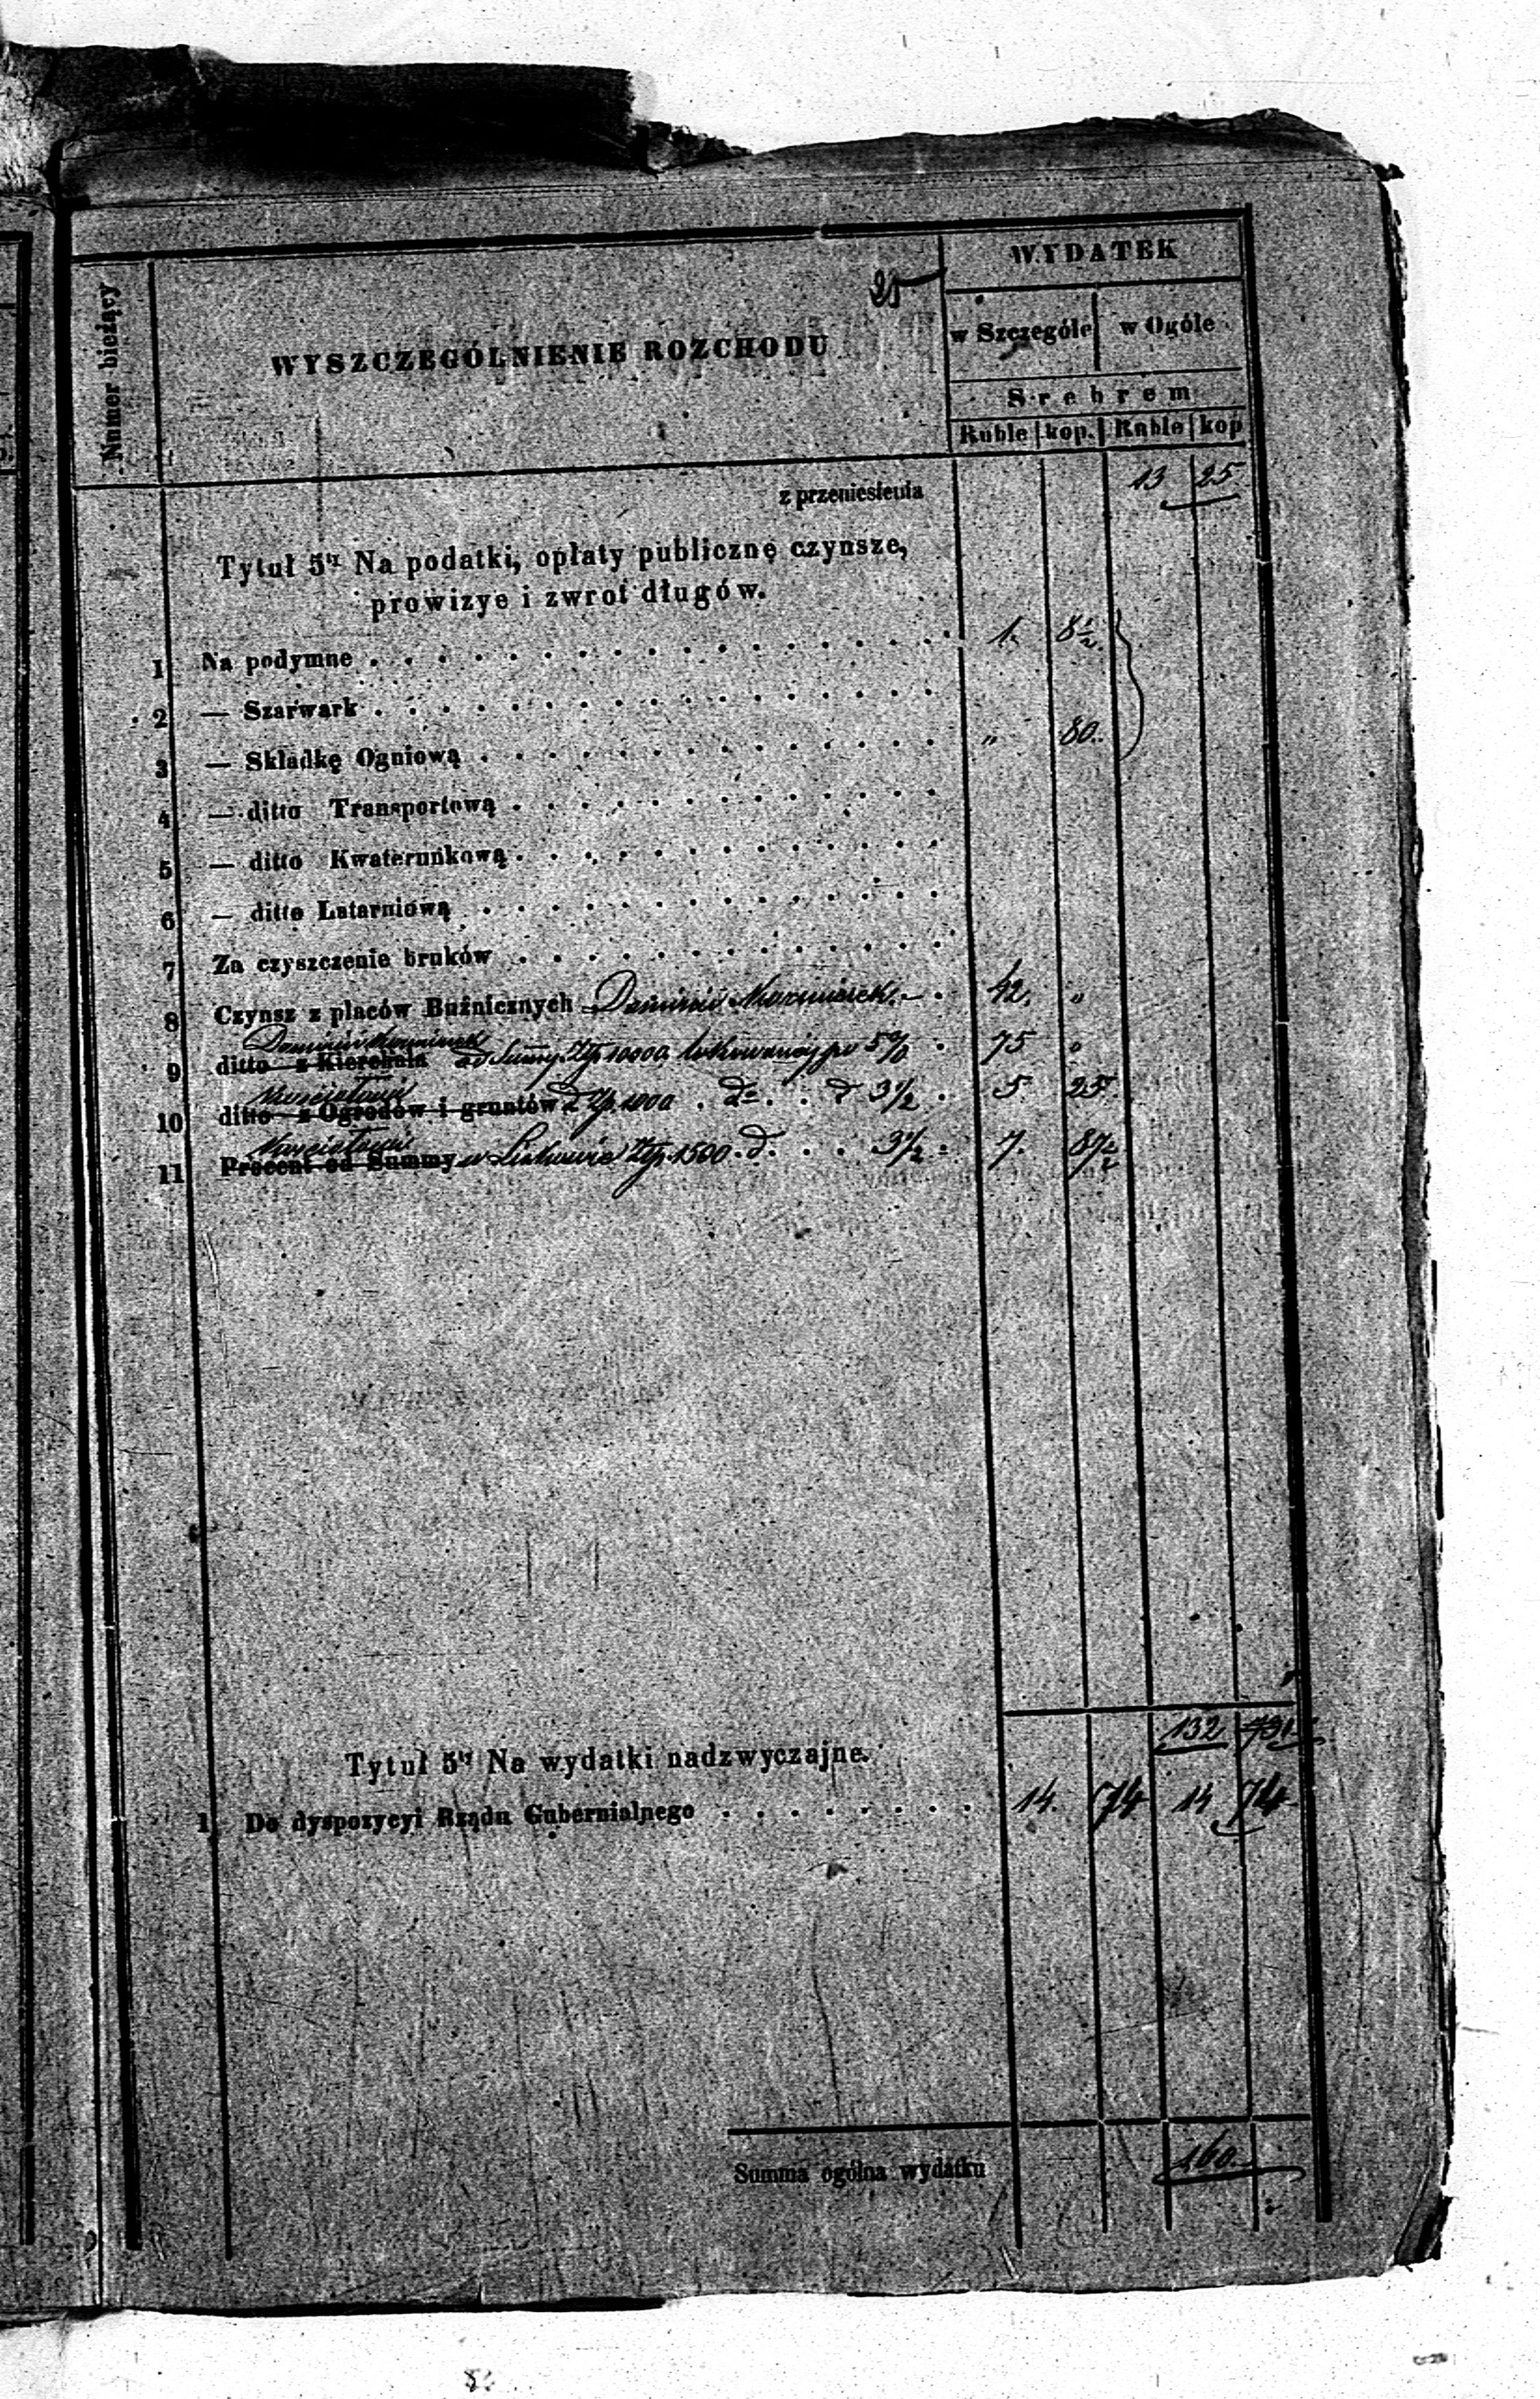 25
Numer bieżący
WYSZCZEGÓLNIENIE ROZCHODU
WYDATEK
w Szczególe w Ogóle
Srebrem
Ruble kop. Ruble kop
z przeniesienia 13 25
Tytuł 5ty Na podatki, opłaty publicznę czynsze,
prowizye i zwrot długów.
1 Na podymne 1. 8½
2 — Szarwark
3 — Składkę Ogniową „ 80.
4 — ditto Transportową
5 — ditto Kwaterunkową
6 — ditto Latarniową
7 Za czyszczenie bruków
8 Czynsz z placów Buźnicznych 42. „
9 ditto z Kierchala od Summy Złp 10000 lokowanéj po 5% 75 „
10 ditto z Ogrodów i gruntów d Złp. 1000 do d 3½ 5 25
11 Procent od Summy Złp. 1500 d 3½ 7. 87½
132
Tytuł 5ty Na wydatki nadzwyczajne.
1 Do dyspozycyi Rządu Gubernialnego 14. 74 14 74
Summa ogólna wydatku 160.